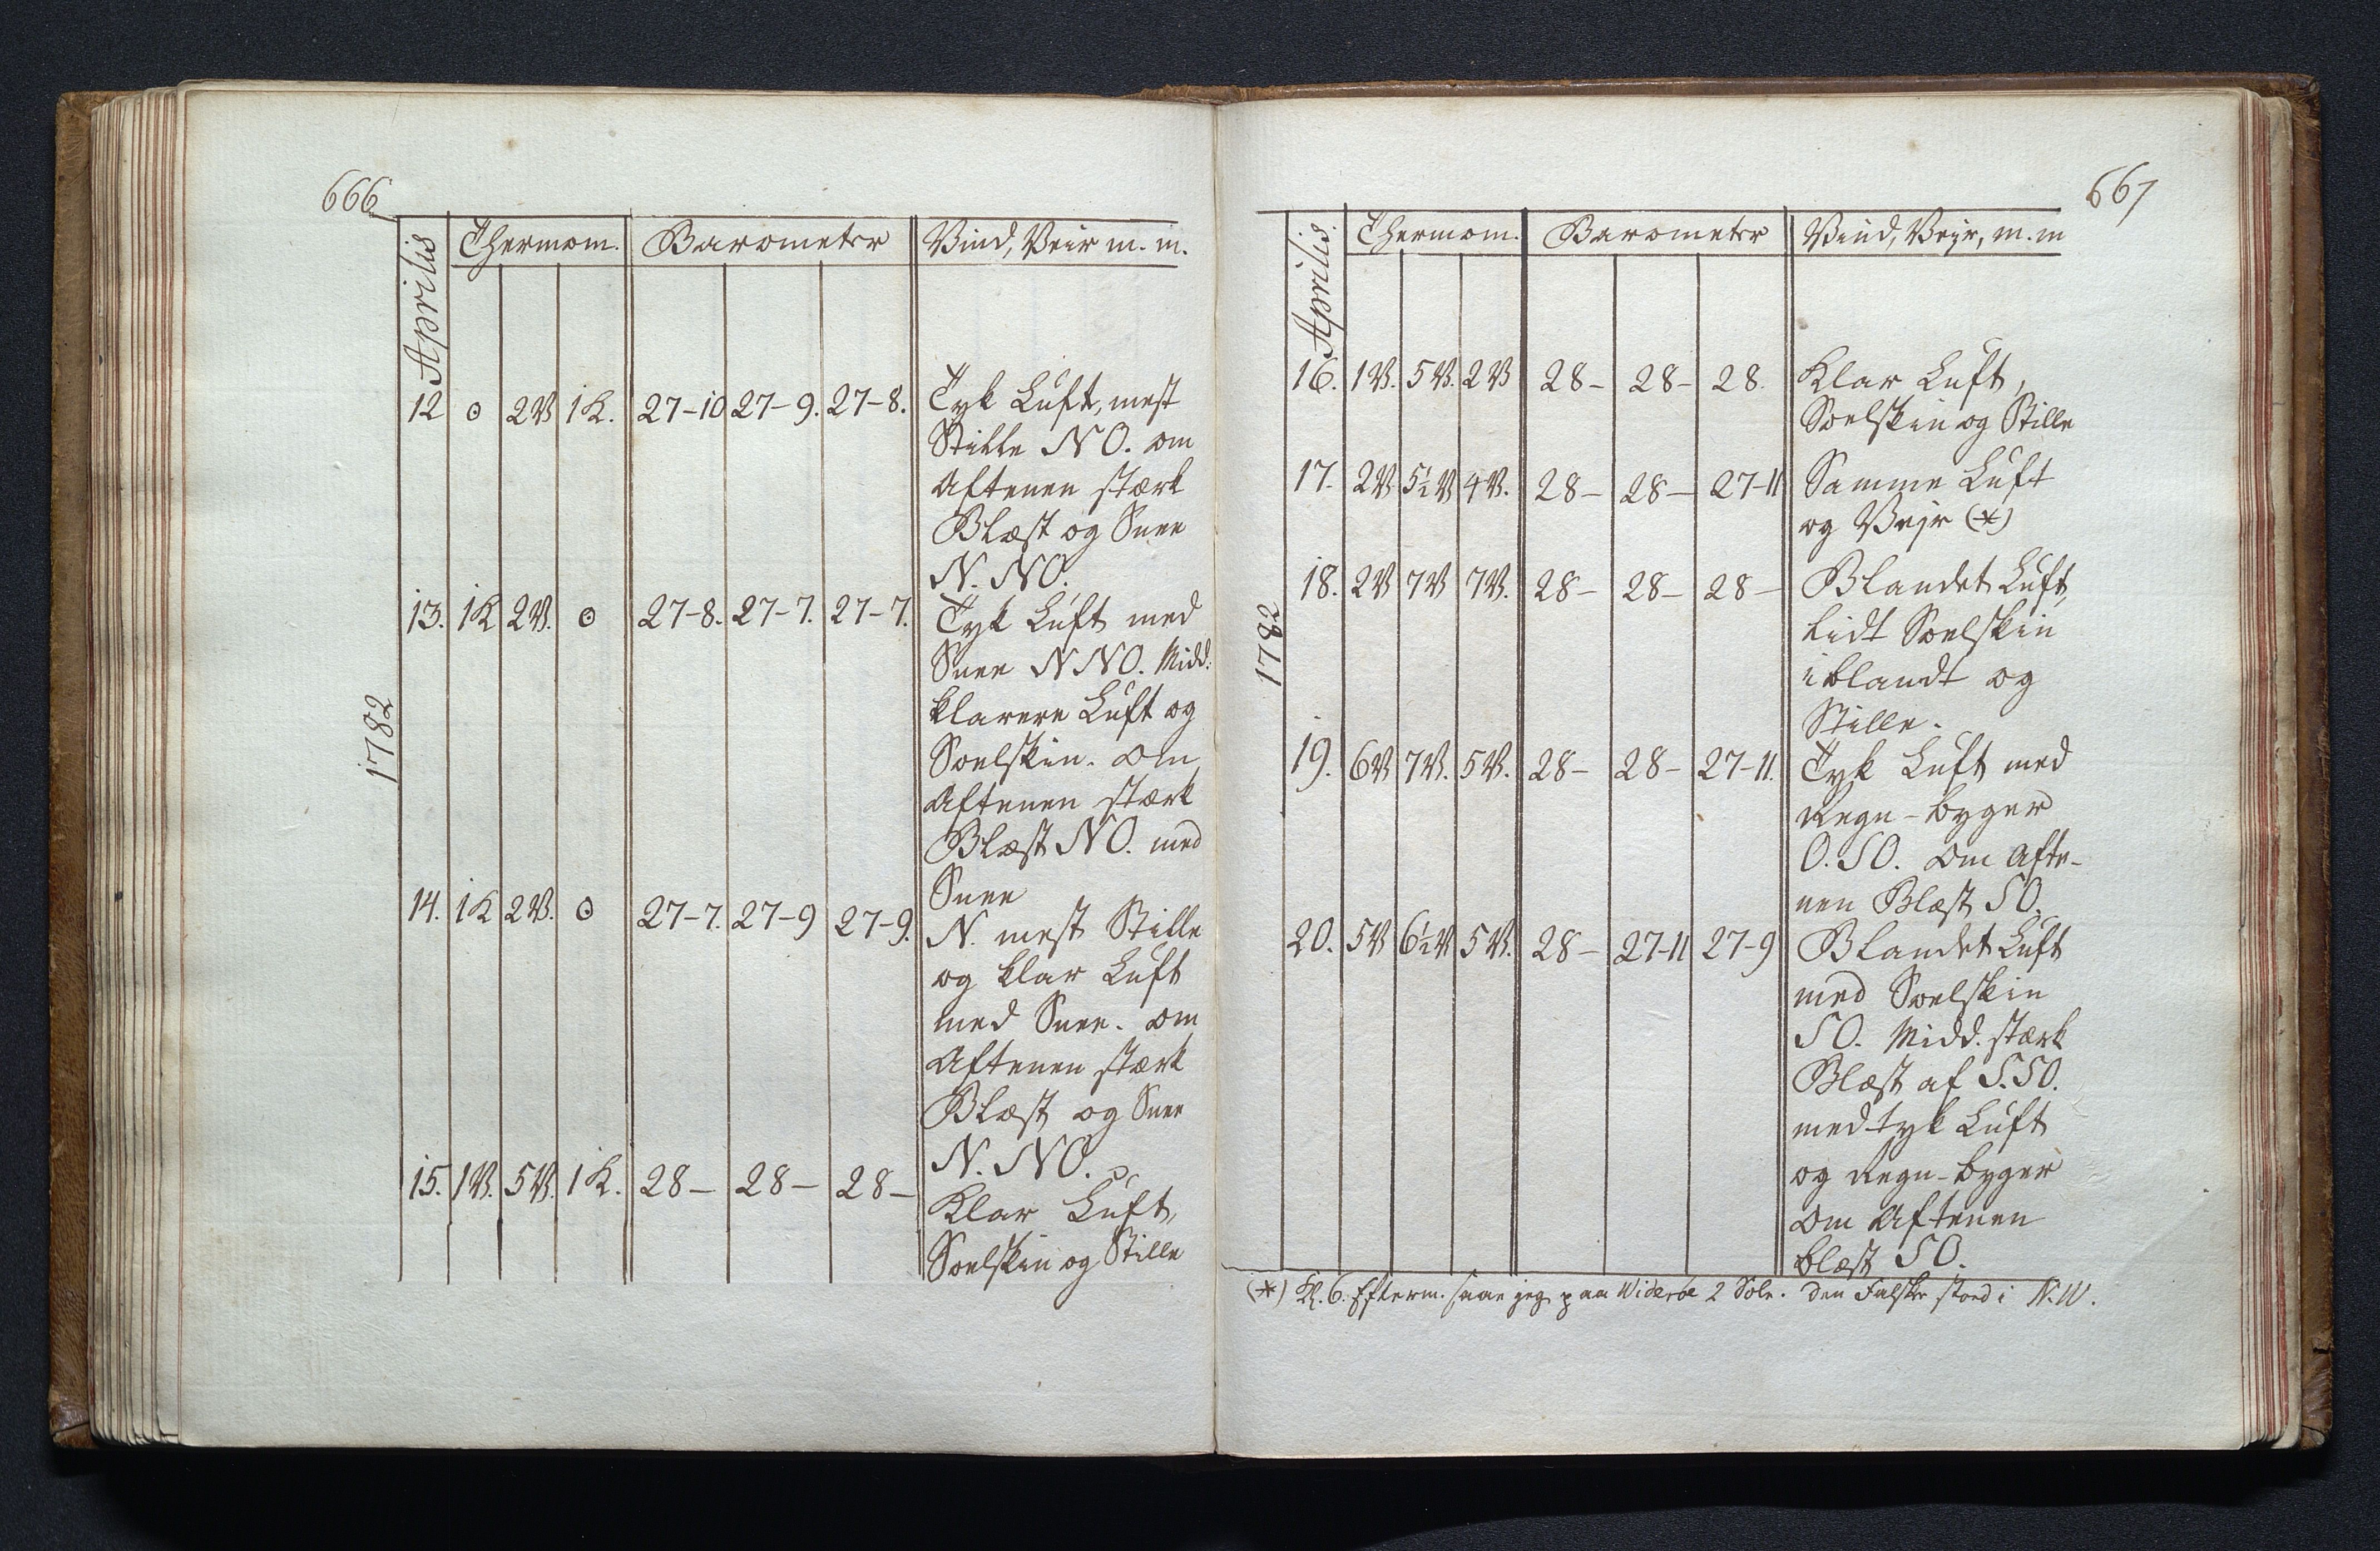 666
Aprilis
Thermom. Barometer Vind, Veir m. m.
1782
12 0 2V 1K. 27-10 27-9. 27-8. Tyk Luft, mest
Stille NO. om
Aftenen stærk
Blæst og Snee
N. NO.
13. 1K 2V. 0 27-8. 27-7. 27-7. Tyk Luft med
Snee NNO. Midd:
klarere Luft og
Soelskin. om
Aftenen stærk
Blæst NO. med
Snee
14. 1K 2V. 0 27-7. 27-9 27-9. N. mest Stille
og klar Luft
med Snee. om
Aftenen stærk
Blæst og Snee
N. NO.
15. 1V. 5V. 1K. 28- 28- 28- Klar Luft,
Soelskin og Stille
667
Aprilis.
Thermom. Barometer Vind, Vejr, m. m
1782
16. 1V. 5V. 2V 28- 28- 28. Klar Luft,
Soelskin og Stille
17. 2V 5½V 4V. 28- 28- 27-11 Samme Luft
og Vejr (*)
18. 2V 7V 7V. 28- 28- 28- Blandet Luft,
lidt Soelskin
iblandt og
Stille.
19. 6V 7V. 5V. 28- 28- 27-11. Tyk Luft med
Regn-byger
O. SO. om Afte-
nen Blæst SO.
20. 5V 6½V 5V. 28- 27-11 27-9 Blandet Luft
med Soelskin
SO. Midd. stærk
Blæst af S.SO.
med tyk Luft
og Regn-byger
om Aftenen
blæst SO.
(*) Kl. 6. Efterm. saae jeg paa Widerøe 2 Sole. den Falske stoed i N.W.